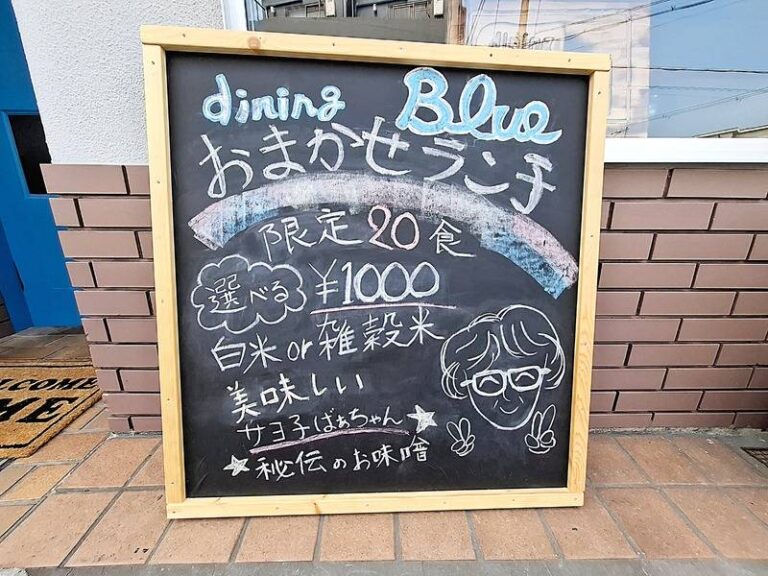 dining Blue
おまかせランチ
限定20食
選べる ¥1000
白米or雑穀米
美味しい
サヨ子ばぁちゃん
秘伝のお味噌
WELCOME
ME